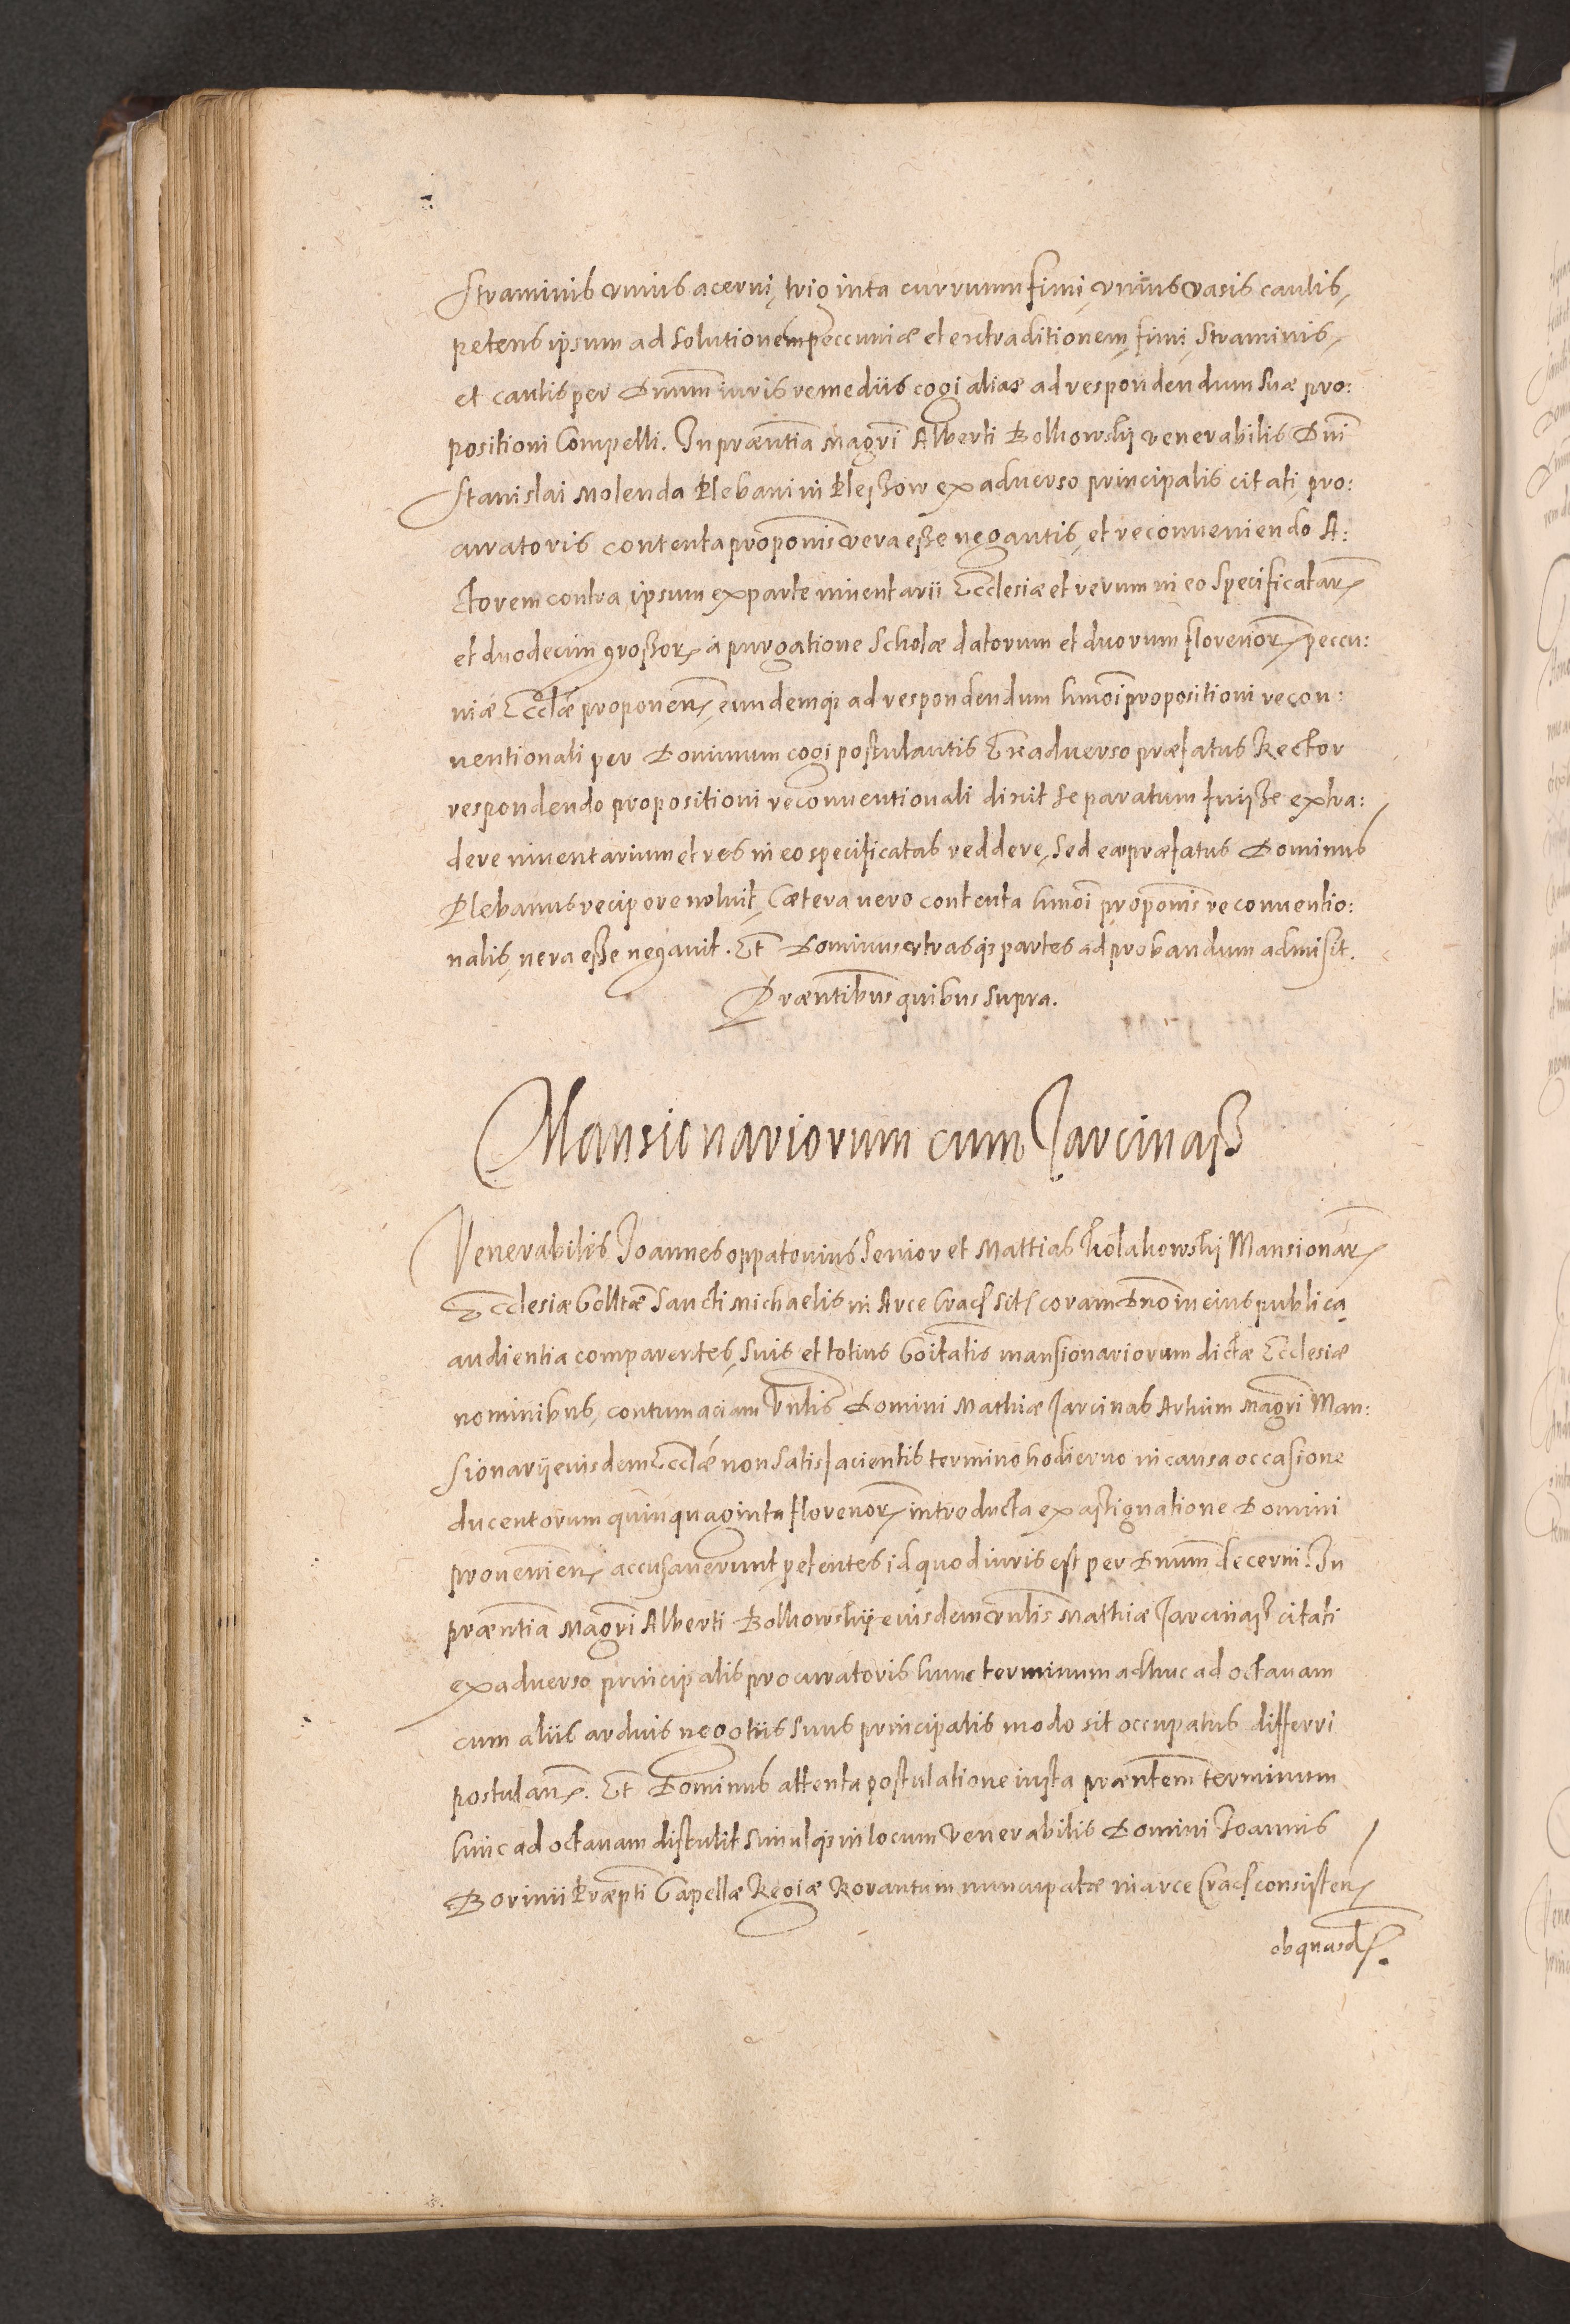 Straminis unius acervi, triginta curruum fimi, unius vasis caulis,
petens ipsum ad solutionem peccuniæ et extraditionem, fimi, Straminis,
et caulis per Dnum iuris remediis cogi alias ad respondendum suæ pro:
positioni Compelli. In præntia Magri Alberti Bolkowskij venerabilis Dni
Stanislai Molenda Plebani in Pleßow ex adverso principalis citati, pro:
curatoris contenta proponis vera eße negantis, et reconveniendo A:
ctorem contra ipsum ex parte inventarii Ecclesiæ et rerum in eo specificatar
et duodecim großor a purgatione Scholæ datorum et duorum florenor peccu:
niæ Ecclæ proponen, eundemq ad respondendum hmoi propositioni recon:
ventionali per Dominum cogi postulantis Ex adverso præfatus Rector
respondendo propositioni reconventionali dixit se paratum fuiße extra:
dere inventarium et res in eo specificatas reddere, sed ea præfatus Dominus
Plebanus recipere noluit, Cætera vero contenta hmoi proponis reconventio:
nalis, vera eße negavit. Et Dominus utrasq partes ad probandum admisit.
Præntibus quibus supra.
Mansionariorum cum Jarcinaß
Venerabiles Joannes oppatovius Senior et Mattias Kolakowskij Mansionar
Ecclesiæ Colltæ Sancti Michaelis in Arce Crac sit coram Dno in eius publica
audientia comparentes, suis et totius Coitatis mansionariorum dictæ Ecclesiæ
nominibus, contumaciam Vnlis Domini Mathiæ Jarcinas Artium Magri Man:
sionarij eiusdem Ecclæ non satisfacientis termino hodierno in causa occasione
ducentorum quinquaginta florenor introducta ex aßignatione Domini
provenien, accusaverunt petentes id quod iuris est per Dnum decerni. In
præntia Magri Alberti Bolkowskij eiusdem vnlis Mathiæ Jarcinaß citati
ex adverso principalis procuratoris hunc terminum adhuc ad octavam
cum aliis arduis negotiis suus principalis modo sit occupatus differri
postulan. Et Dominus attenta postulatione iusta præntem terminum
hinc ad octavam distulit Simulq in locum Venerabilis Domini Joannis
Borinii Præpti Capellæ Regiæ Rorantum nuncupatæ in arce Crac consisten
ob quasd.